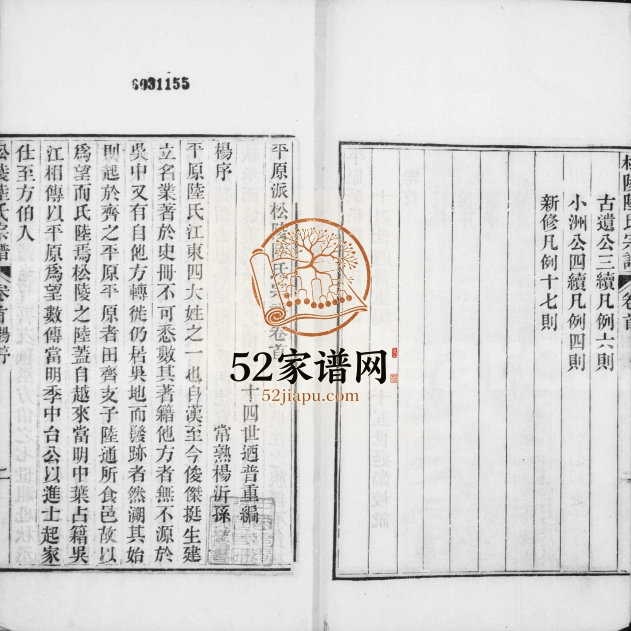 6031155
松陵陸氏宗譜
卷首
古遺公三續凡例六則
小洲公四續凡例四則
新修凡例十七則
平原派松陵陸氏宗譜卷首
十四世迺普重編
楊序
常熟楊沂孫
平原陸氏江東四大姓之一也自漢至今俊傑挺生建
立名業著於史冊不可悉數其著籍他方者無不源於
吳中又有自他方轉徙仍居吳地而發跡者然溯其始
則起於齊之平原平原者田齊支子陸通所食邑故以
為望而氏陸焉松陵之陸蓋自越來當明中葉占籍吳
江相傳以平原為望數傳當明季中台公以進士起家
仕至方伯入
松陵陸氏宗譜
卷首楊序
一
52家谱网
52jiapu.com